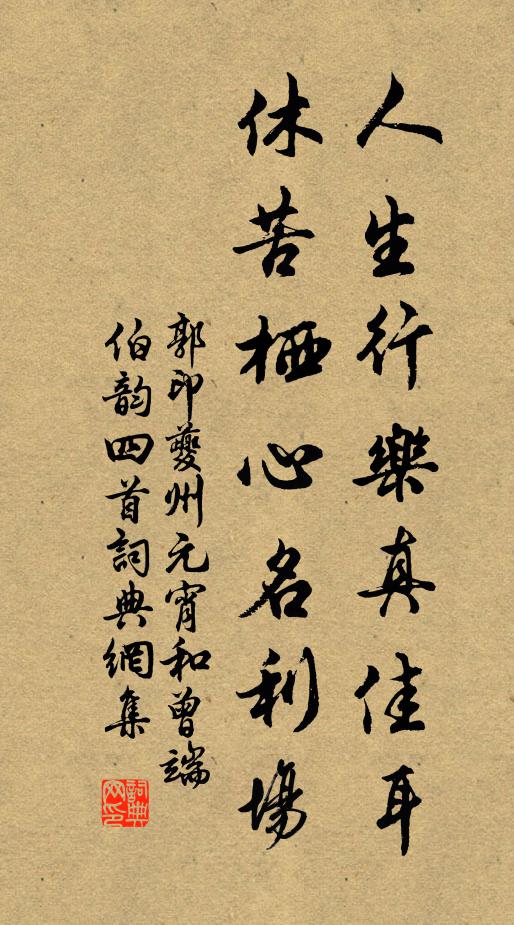 人生行樂真佳耳
休苦栖心名利場
郭印夔州元宵和曾端
伯韵四首詞典網集
詞典网印